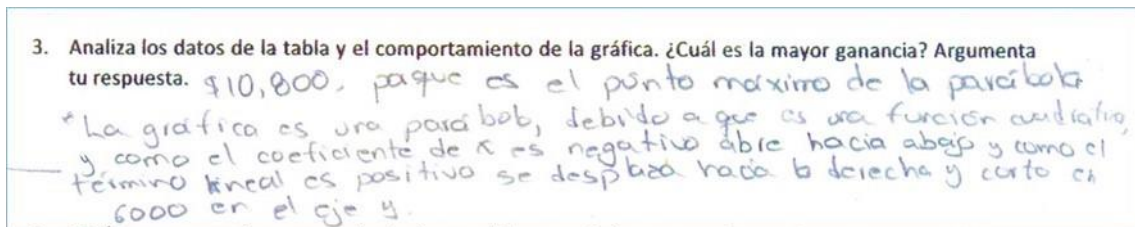 3. Analiza los datos de la tabla y el comportamiento de la gráfica. ¿Cuál es la mayor ganancia? Argumenta
tu respuesta. $10,800, porque es el punto máximo de la parábola
* La gráfica es una parábola, debido a que es una función cuadrática,
y como el coeficiente de x es negativo abre hacia abajo y como el
término lineal es positivo se desplaza hacia la derecha y corta en
6000 en el eje y.